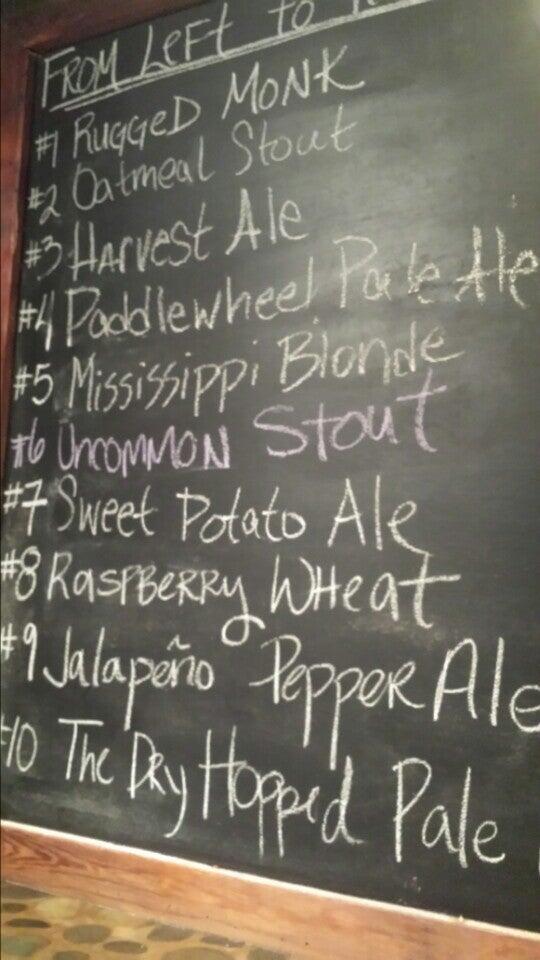 From Left to
#1 Rugged Monk
#2 Oatmeal Stout
#3 Harvest Ale
#4 Paddlewheel Pale Ale
#5 Mississippi Blonde
#6 Uncommon Stout
#7 Sweet Potato Ale
#8 Raspberry Wheat
#9 Jalapeño Pepper Ale
#10 The Dry Hopped Pale